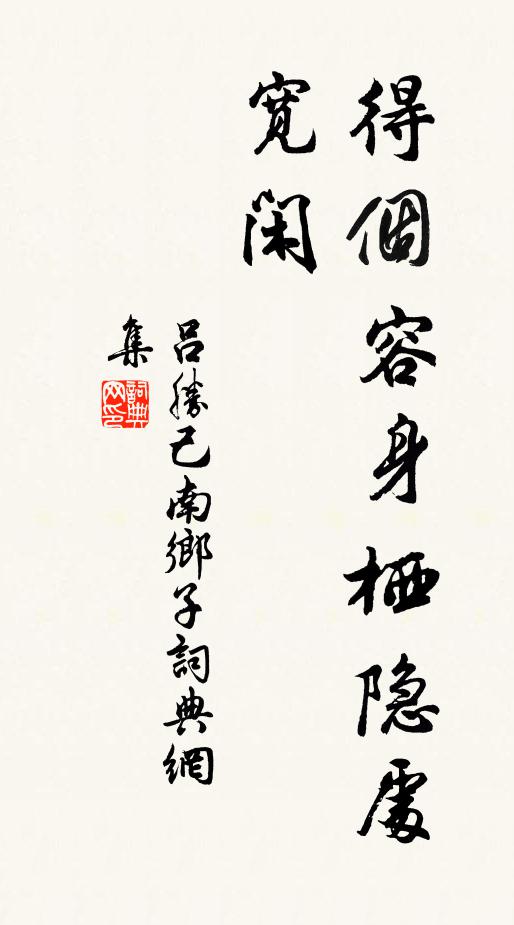 得個容身栖隐處
寬閑
吕勝己南鄉子詞典網
集
詞典
网印